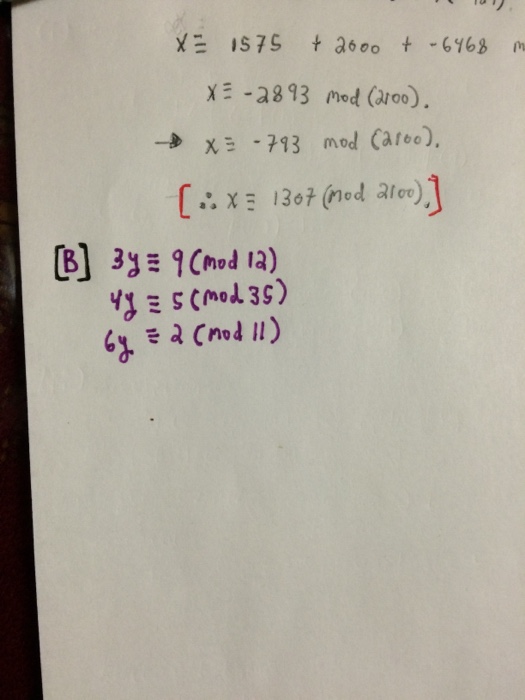 x ≡ 1575 + 2000 + -6468 m
x ≡ -2893 mod (2100).
→ x ≡ -793 mod (2100).
[∴ x ≡ 1307 (mod 2100).]
[B] 3y ≡ 9 (mod 12)
4y ≡ 5 (mod 35)
6y ≡ 2 (mod 11)